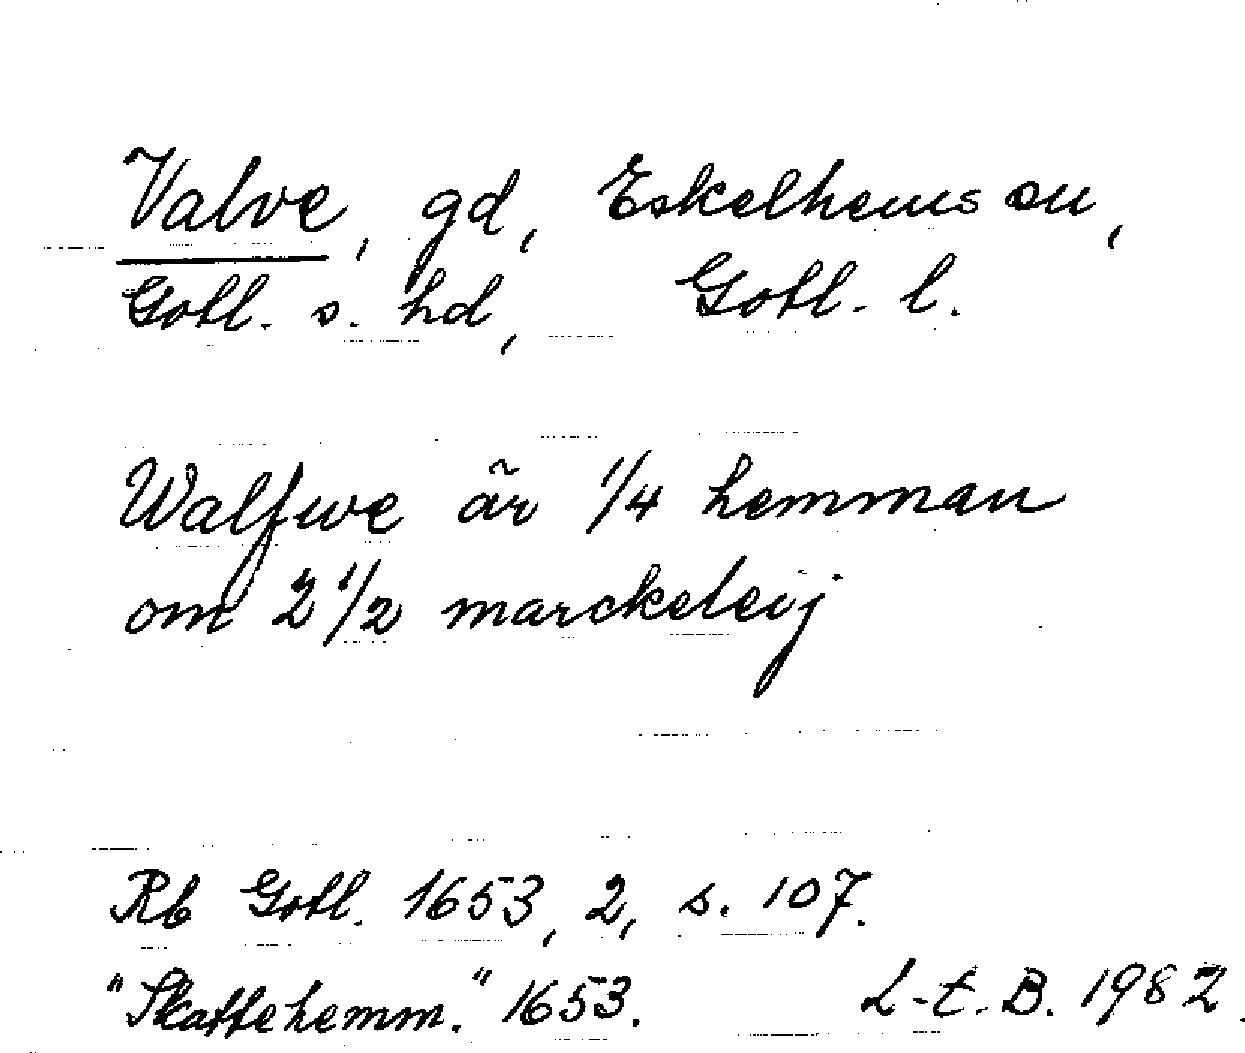 Valve, gd, Eskelhems sn,
Gotl. s. hd, Gotl. l.
Walfwe är 1/4 hemman
om 2 1/2 marckeleij
Rb Gotl. 1653, 2, s. 107.
"Skattehemm." 1653. L-t. B. 1982.